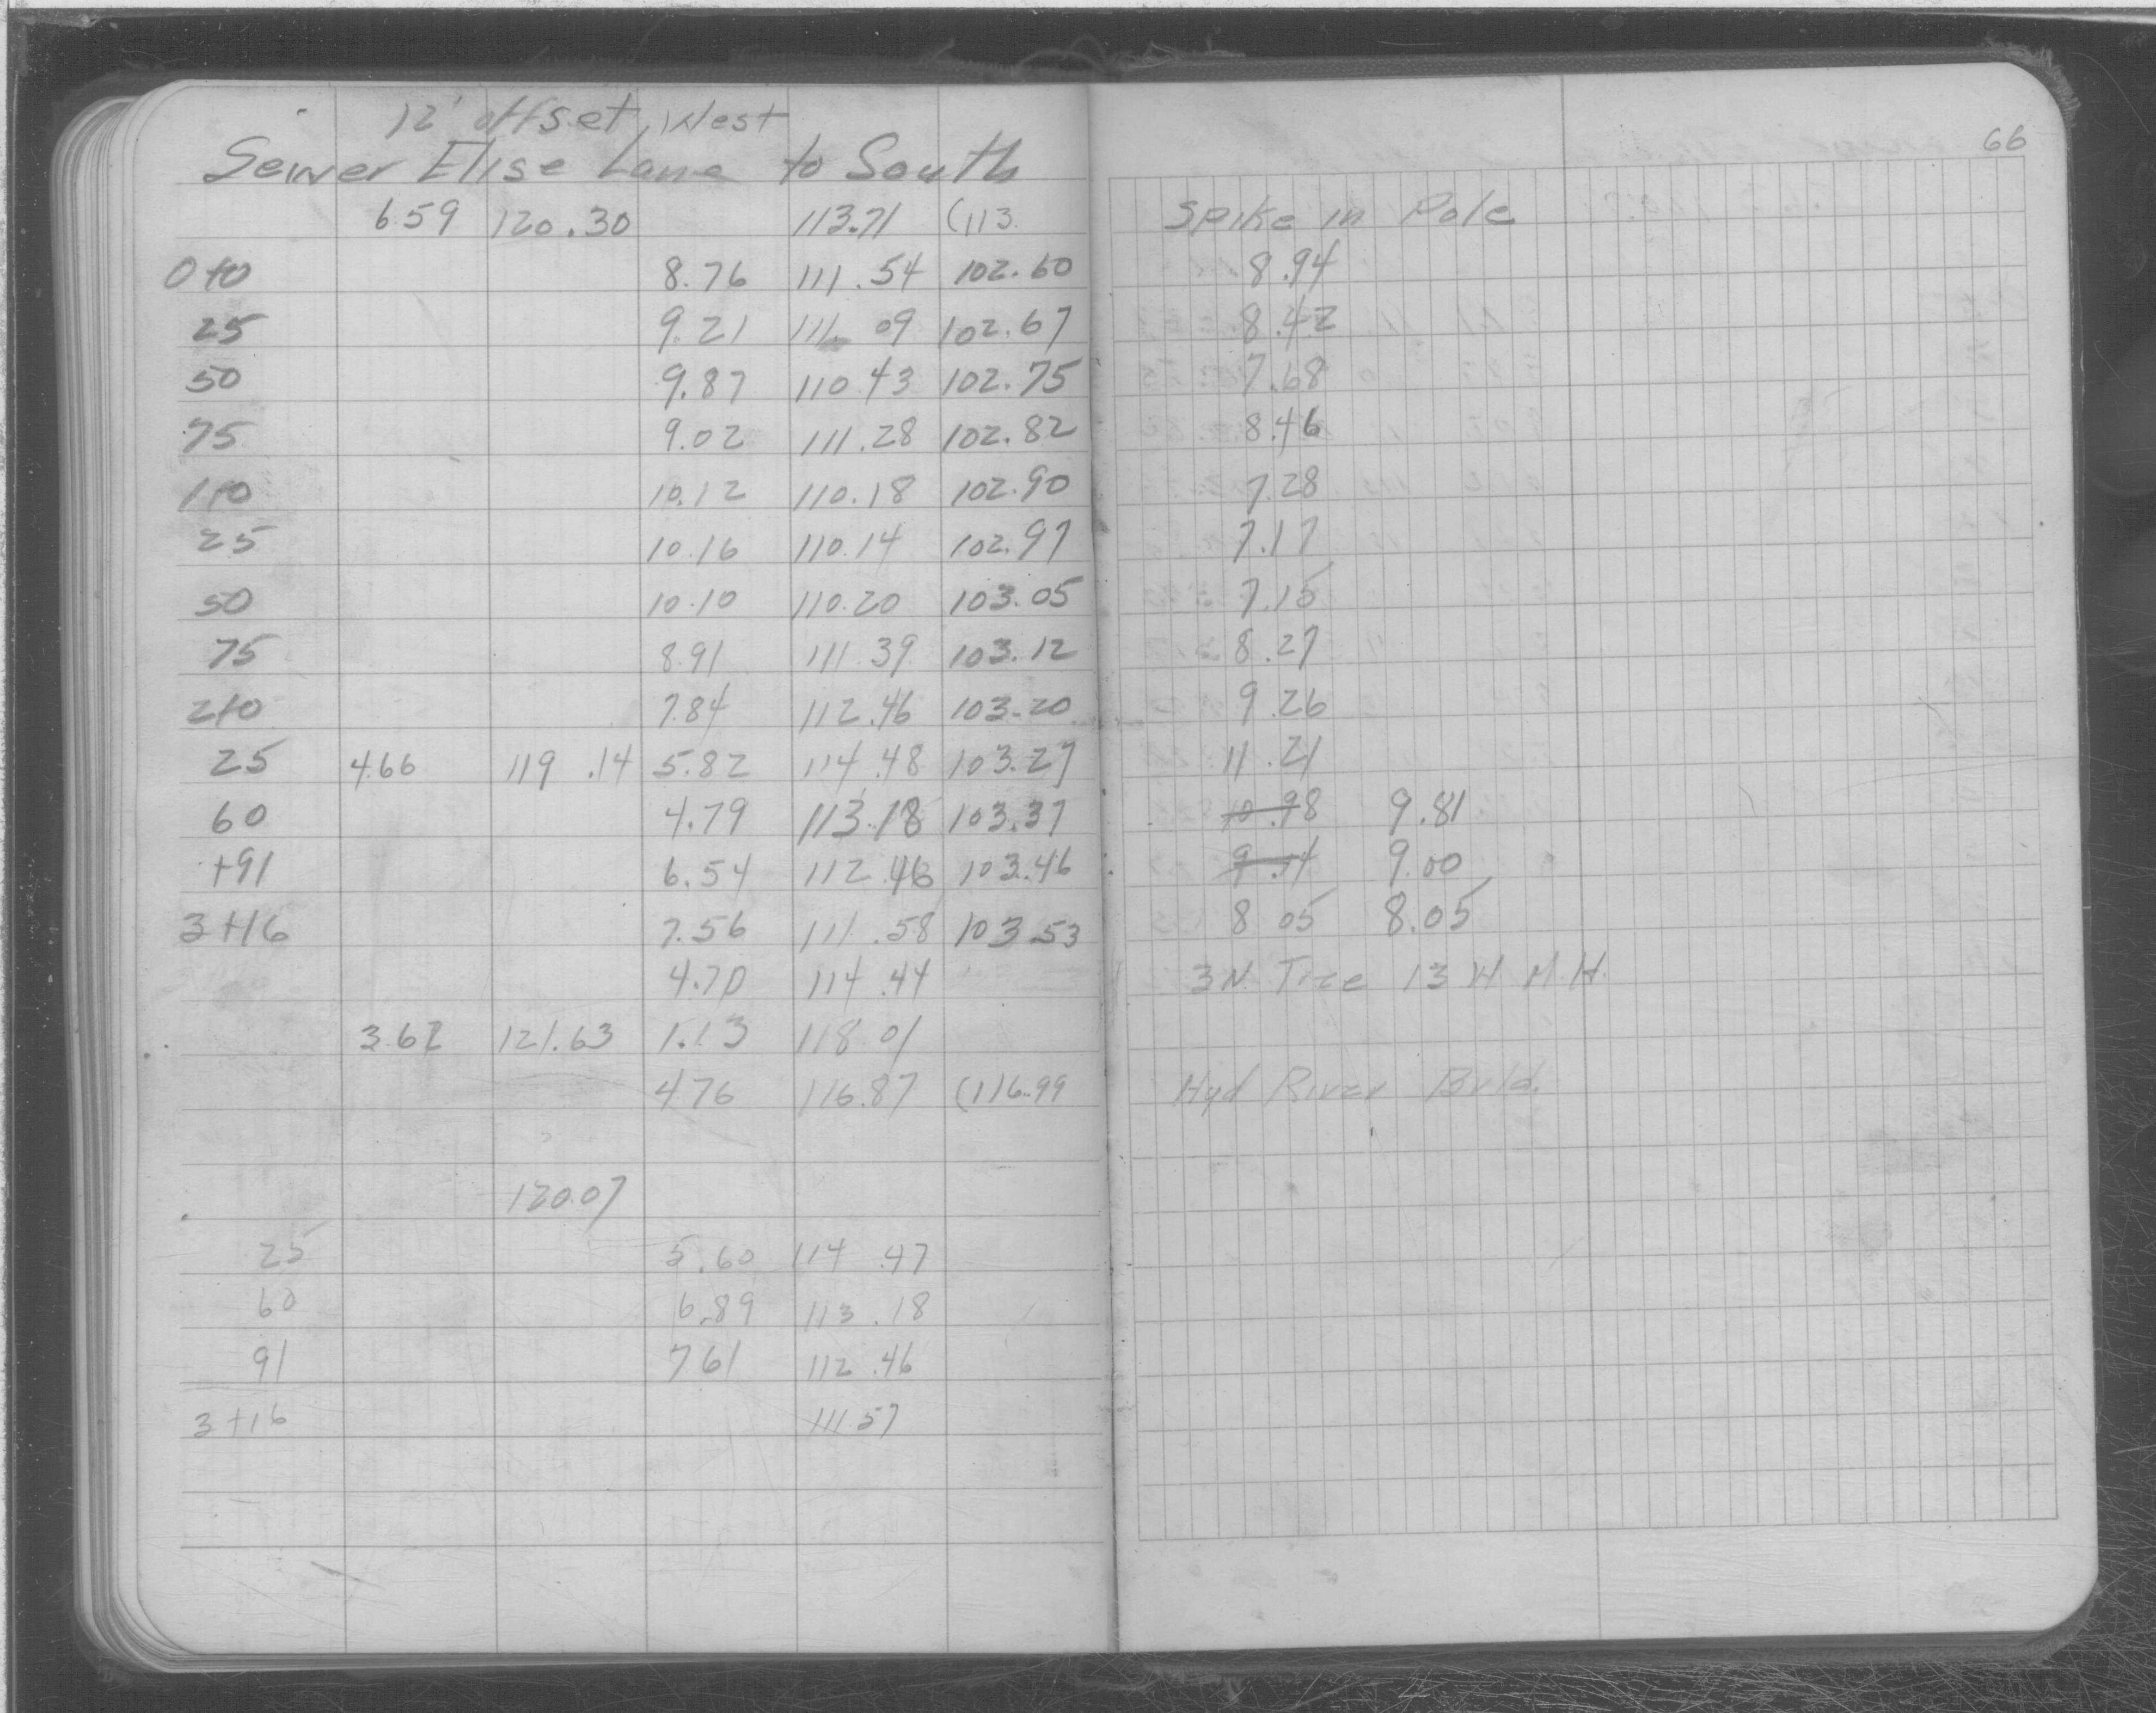 12' offset West
Sewer Elise Lane to South
66
6.59 120.30 113.71 (113. Spike in Pole
0+0 8.76 111.54 102.60 8.94
25 9.21 111.09 102.67 8.42
50 9.87 110.43 102.75 7.68
75 9.02 111.28 102.82 8.46
1+0 10.12 110.18 102.90 7.28
25 10.16 110.14 102.97 7.17
50 10.10 110.20 103.05 7.15
75 8.91 111.39 103.12 8.27
2+0 7.84 112.46 103.20 9.26
25 4.66 119.14 5.82 114.48 103.27 11.21
60 4.79 113.18 103.37 10.98 9.81
+91 6.54 112.46 103.46 9.14 9.00
3+16 7.56 111.58 103.53 8 05 8.05
4.70 114.44 3N. Tree 13 W M.H.
3.62 121.63 1.13 118 01
4.76 116.87 (116.99 Hyd River Bvld.
120.07
25 5.60 114.47
60 6.89 113.18
91 7.61 112.46
3+16 111.57